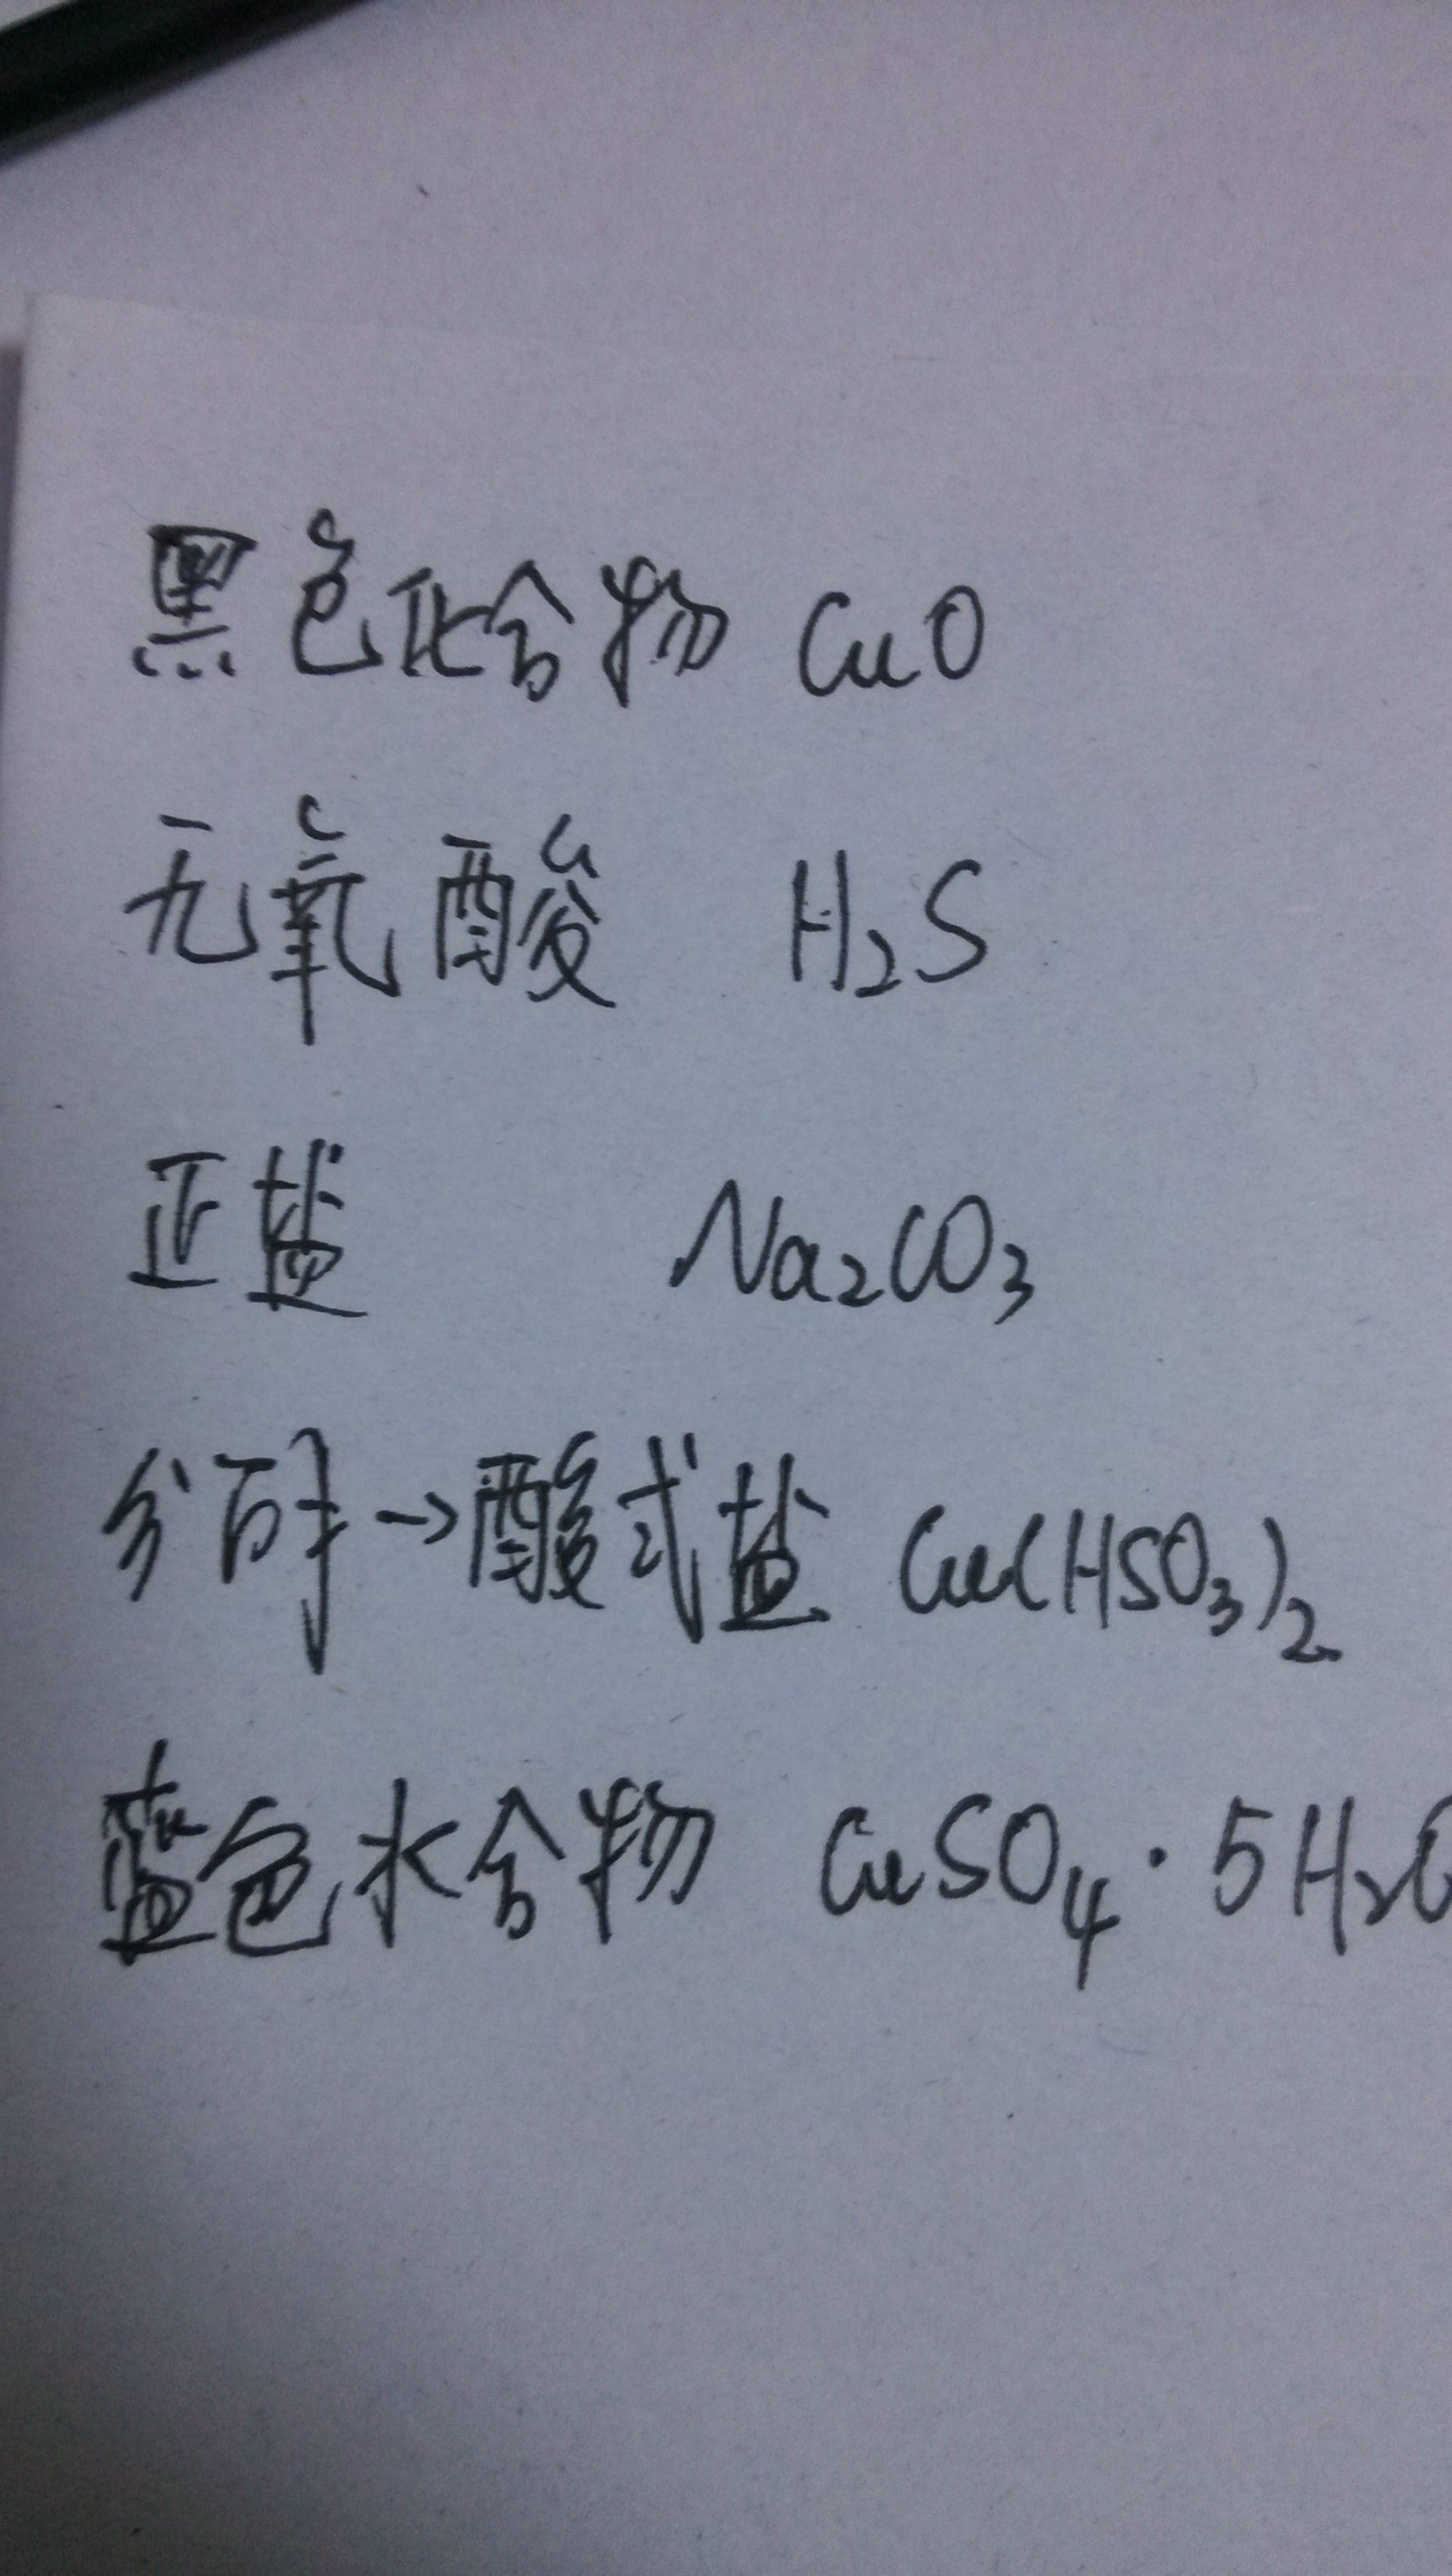 黑色化合物 CuO
无氧酸 H₂S
正盐 Na₂CO₃
→酸式盐 Cu(HSO₃)₂
蓝色水合物 CuSO₄·5H₂O